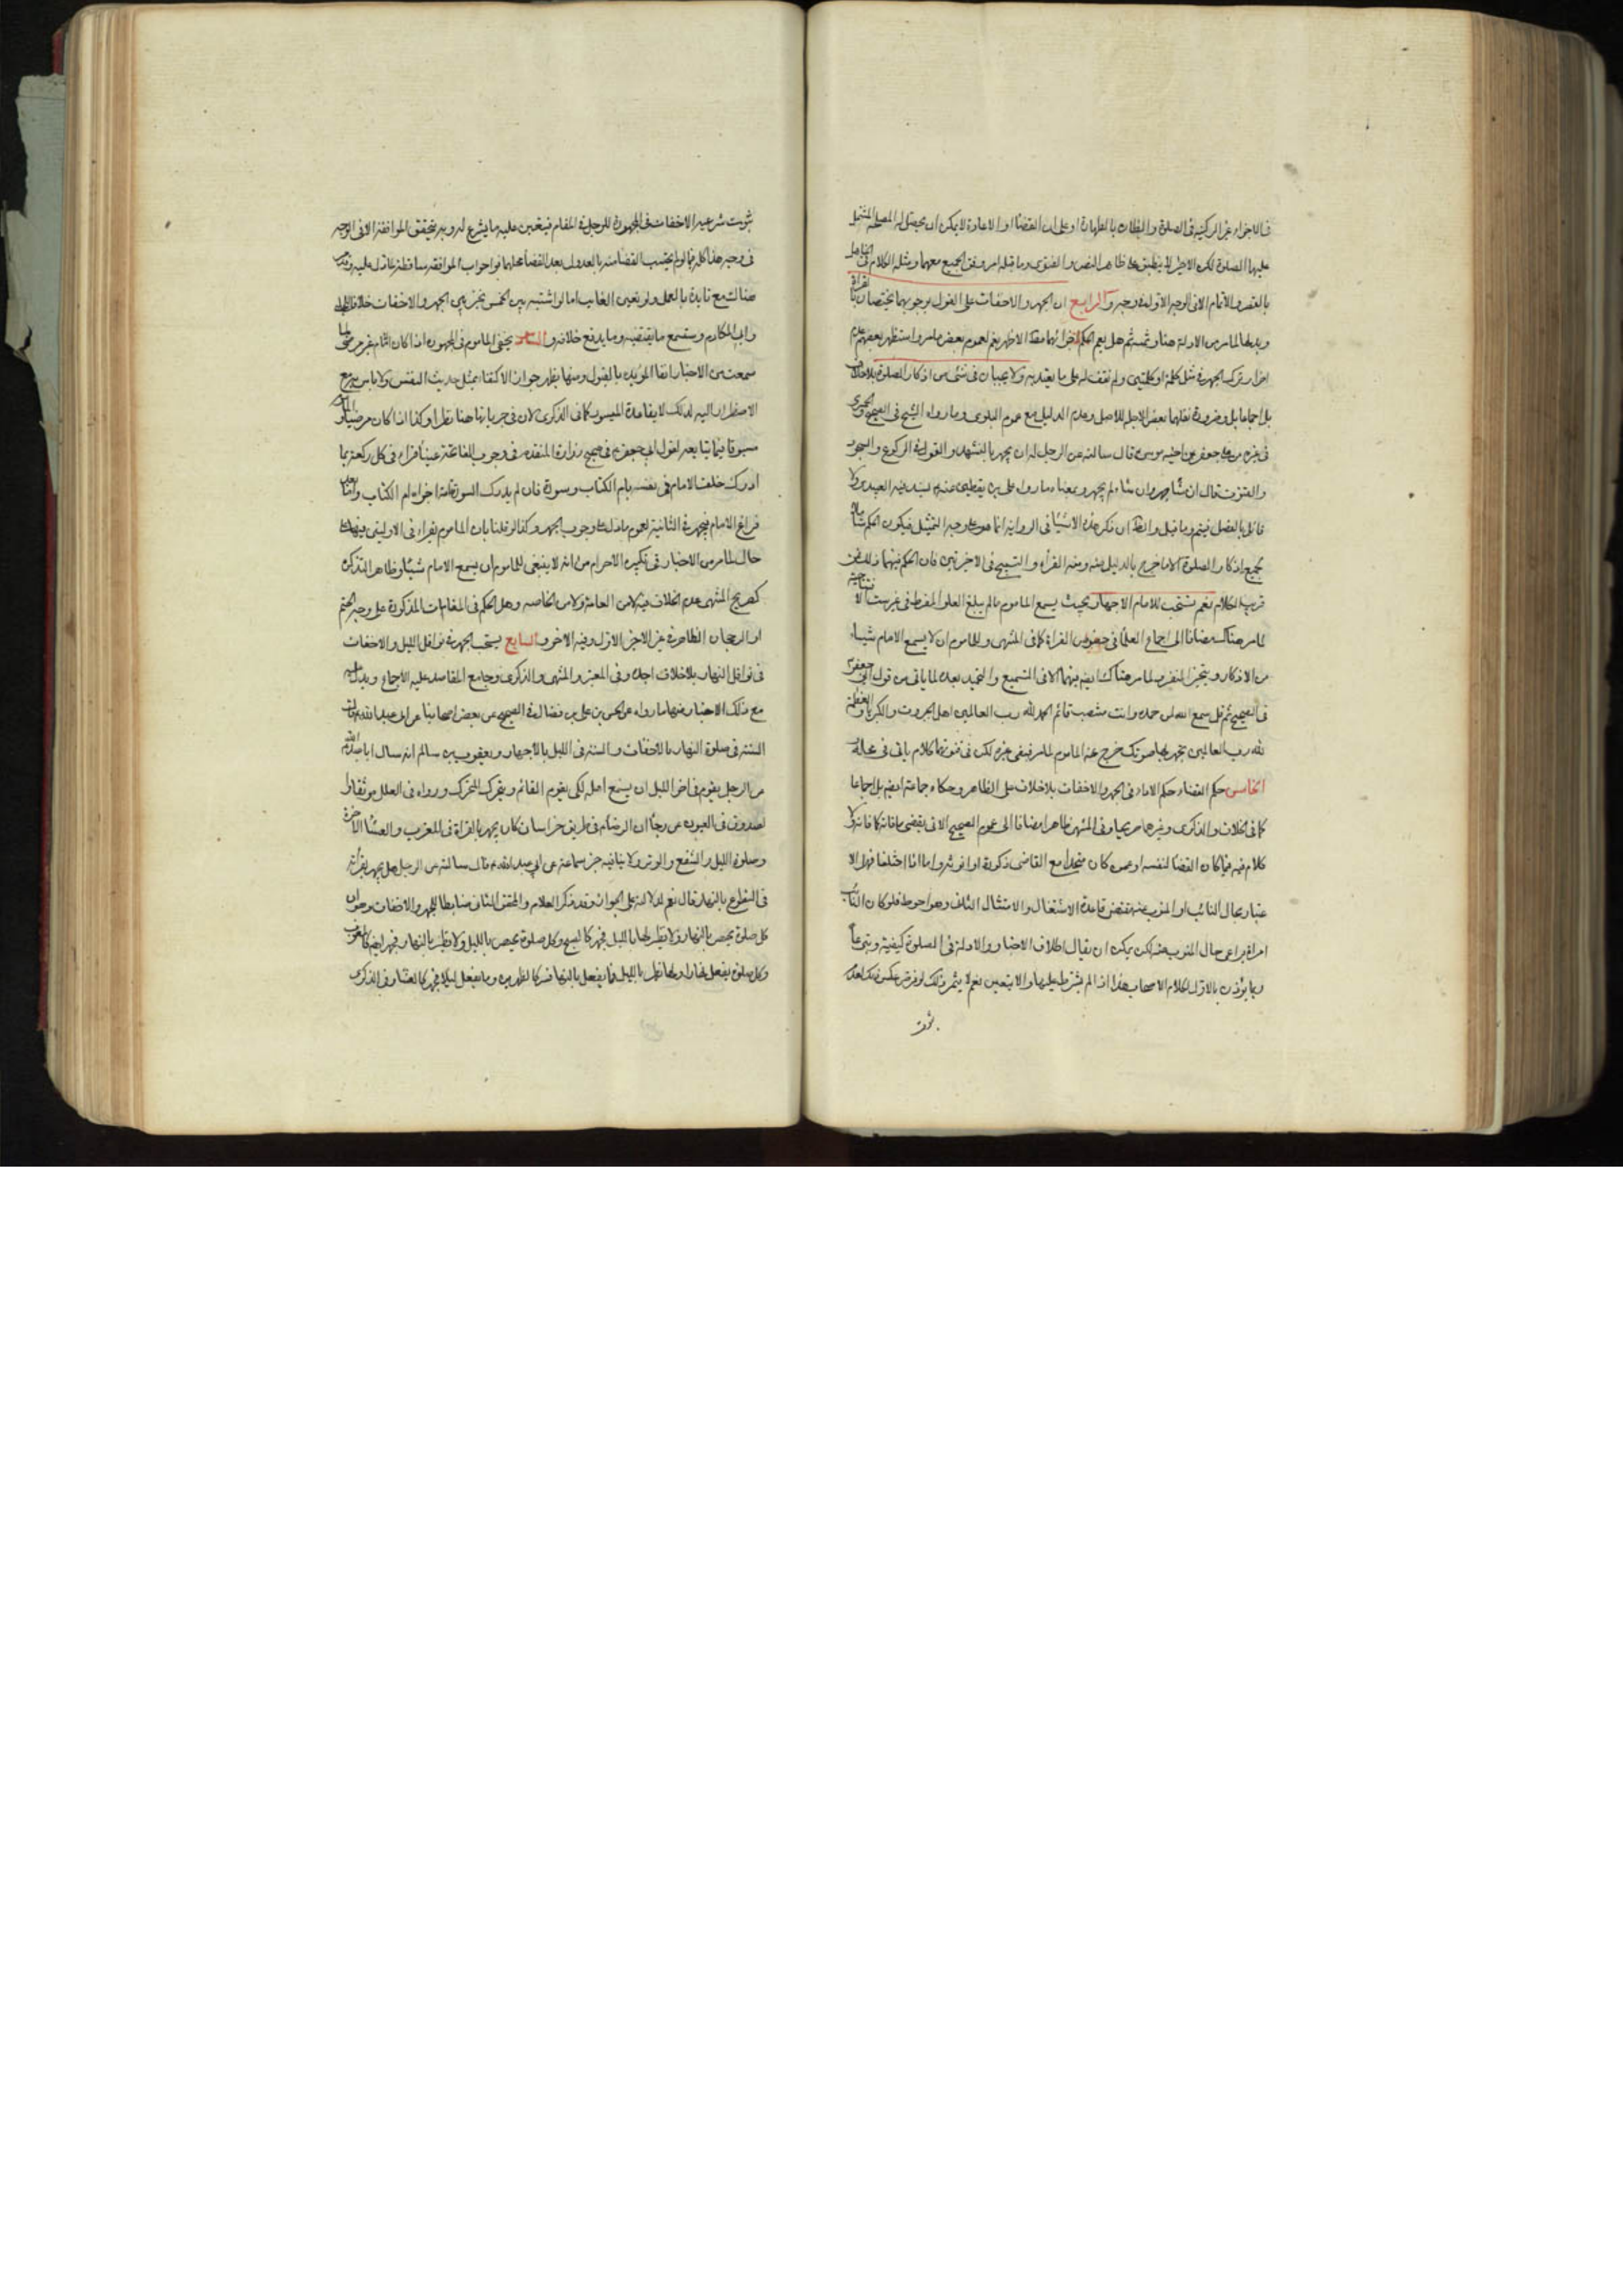 في الاجزاء غير الركنية في الصلوة والظان بالطهارة او على ان القضاء او الاعادة لا يمكن ان يحصل له المصلحة المشتمل
عليها الصلوة لكن الاطراد لا ينطبق على ظاهر النص والفتوى وما قبله امر وفق الجميع معهما ومثله الكلام في الجاهل
بالقصر والاتمام الاتي الوجه الاولى وجه والرابع ان الجهر والاخفات على القول بوجوبهما يختصان بالقراءة
وبدلها لما مر من الادلة هنا وثمة ثم هل يعم الحكم اجزائهما مقتضى الاطلاق نعم لعموم بعض ما مر واستظهر بعضهم عدم
اضرار ترك الجهر في مثل كلمة او كلمتين ولم نقف له على ما يعتد به ولا يجبان في شئ من اذكار الصلوة بلا خلاف
بل اجماعا بل وضرورة نقلهما بعض الاجلة للاصل وعدم الدليل مع عموم البلوى وما رواه الشيخ في الصحيح والحميري
في غيره عن علي بن جعفر عن اخيه موسى قال سالته عن الرجل له ان يجهر بالتشهد والقول في الركوع والسجود
والقنوت قال ان شاء جهر وان شاء لم يجهر وبمعناه ما رواه علي بن يقطين عنه بسند فيه العبيدي ولا
قائل بالفصل فيتم وما قيل والظاهر ان ذكر هذه الاشياء في الرواية انما هو على وجه التمثيل فيكون الحكم شاملا
لجميع اذكار الصلوة الا ما خرج بالدليل منه ومنه القراءة والتسبيح في الاخرتين فان الحكم فيهما ذلك
قريب الكلام نعم يستحب للامام الاجهار بحيث يسمع الماموم ما لم يبلغ العلو المفرط في غير ست الافتتاحية
لما مر هناك مضافا الى اجماع العلماء في خصوص القراءة كما في المنتهى وللماموم ان لا يسمع الامام شيئا
من الاذكار ويتخير المنفرد لما مر هناك ايضا فيهما الا في التسميع والتحميد بعده لما ياتي من قول ابي جعفر
في الصحيح ثم قل سمع الله لمن حمده وانت منتصب قائم الحمد لله رب العالمين اهل الجبروت والكبرياء والعظمة
لله رب العالمين تجهر بها صوتك خرج عنه الماموم لما مر فبقي غيره لكن في قنوتهما كلام ياتي في محله
الخامس حكم القضاء حكم الاداء في الجهر والاخفات بلا خلاف على الظاهر وحكاه جماعة ايضا بل اجماعا
كما في الخلاف والذكرى وغيرها صريحا وفي المنتهى ظاهرا مضافا الى عموم الصحيح الاتي يقضي ما فاته كما فاته ولا
كلام فيه فيما كان القضاء لنفسه او عمن كان متحدا مع القاضي ذكورة او انوثة واما اذا اختلفا فهل الا
عتبار بحال النائب او المنوب عنه مقتضى قاعدة الاشتغال والامتثال الثاني وهو احوط فلو كان النائب
امراة يراعى حال المنوب عنه لكن يمكن ان يقال اطلاق الاخبار والادلة في الصلوة كيفية وبتبعها
ربما يؤذن بالاول لكلام الاصحاب هذا اذا لم يشترط عليها والا يتعين نعم لا يثمر ذلك لو فرض عكس ذلك لعدم
ثبوت
ثبوت شرعية الاخفات في الجهرية للرجل في المقام فيتعين عليه ما يشرع له وبه يتحقق الموافقة الا في الوجه
في وجه هذا كله فيما لو لم يحتسب القضاء منه بالعدول بعد القضاء محلهما نواجواب الموافقة ساقطة عما دل عليه وقد مر
هنالك مع تايده بالعمل ولو تعين الغائب اما لو اشتبه بين الخمس تخير بين الجهر والاخفات خلافا للحلبي
وابي المكارم وستسمع ما يقتضيه وما يدفع خلافه والسادس يخفي الماموم في الجهرية اذا كان الامام غير مرضي لما
سمعت من الاخبار انفا المؤيدة بالقبول ومنها يظهر جواز الاكتفاء بمثل حديث النفس ولا باس به مع
الاضطرار اليه لذلك لا بقاعدة الميسور كما في الذكرى لان في جريانها هنا نظرا وكذا اذا كان مرضيا والماموم
مسبوقا فيما تابعه لقول ابي جعفر في صحيح زرارة المتقدمة في وجوب الفاتحة عينا قراء في كل ركعة مما
ادرك خلف الامام في نفسه بام الكتاب وسورة فان لم يدرك السورة تامة اجزاه ام الكتاب واما بعد
فراغ الامام فيجهر في الثانية لعموم ما دل على وجوب الجهر وكذا لو قلنا بان الماموم يقراء في الاوليين فيهما على
حال لما مر من الاخبار في تكبيرة الاحرام من انه لا ينبغي للماموم ان يسمع الامام شيئا وظاهر التذكرة
كصريح المنتهى عدم الخلاف فيه لا من العامة ولا من الخاصة وهل الحكم في المقامات المذكورة على وجه الحتم
او الرجحان الظاهر في غير الاخير الاول وفيه الاخر والسابع يستحب الجهر في نوافل الليل والاخفات
في نوافل النهار بلا خلاف اجده وفي المعتبر والمنتهى والذكرى وجامع المقاصد عليه الاجماع ويدل عليه
مع ذلك الاخبار منها ما رواه عن الحسن بن علي بن فضال في الصحيح عن بعض اصحابنا عن ابي عبد الله قال
السنة في صلوة النهار بالاخفات والسنة في الليل بالاجهار ويعقوب بن سالم انه سال ابا عبد الله
عن الرجل يقوم في اخر الليل ان يسمع اهله لكي يقوم القائم ويتحرك المتحرك ورواه في العلل موثقا وا
لصدوق في العيون عن رجاء ان الرضا في طريق خراسان كان يجهر بالقراءة في المغرب والعشاء الاخرة
وصلوة الليل والشفع والوتر ولا ينافيه خبر سماعة عن ابي عبد الله قال سالته عن الرجل هل يجهر بقراءته
في التطوع بالنهار قال نعم لدلالته على الجواز وقد ذكر العلام والمحقق الثاني ضابطا للجهر والاخفات وهو ان
كل صلوة تختص بالنهار ولا نظير لها بالليل فجهر كالصبح وكل صلوة تختص بالليل ولا نظير بالنهار فجهر ايضا كالمغرب
وكل صلوة يفعل نهارا ولها نظير بالليل فما يفعل بالنهار فسر كالظهرين وما يفعل ليلا فجهر كالعشاء وفي الذكرى